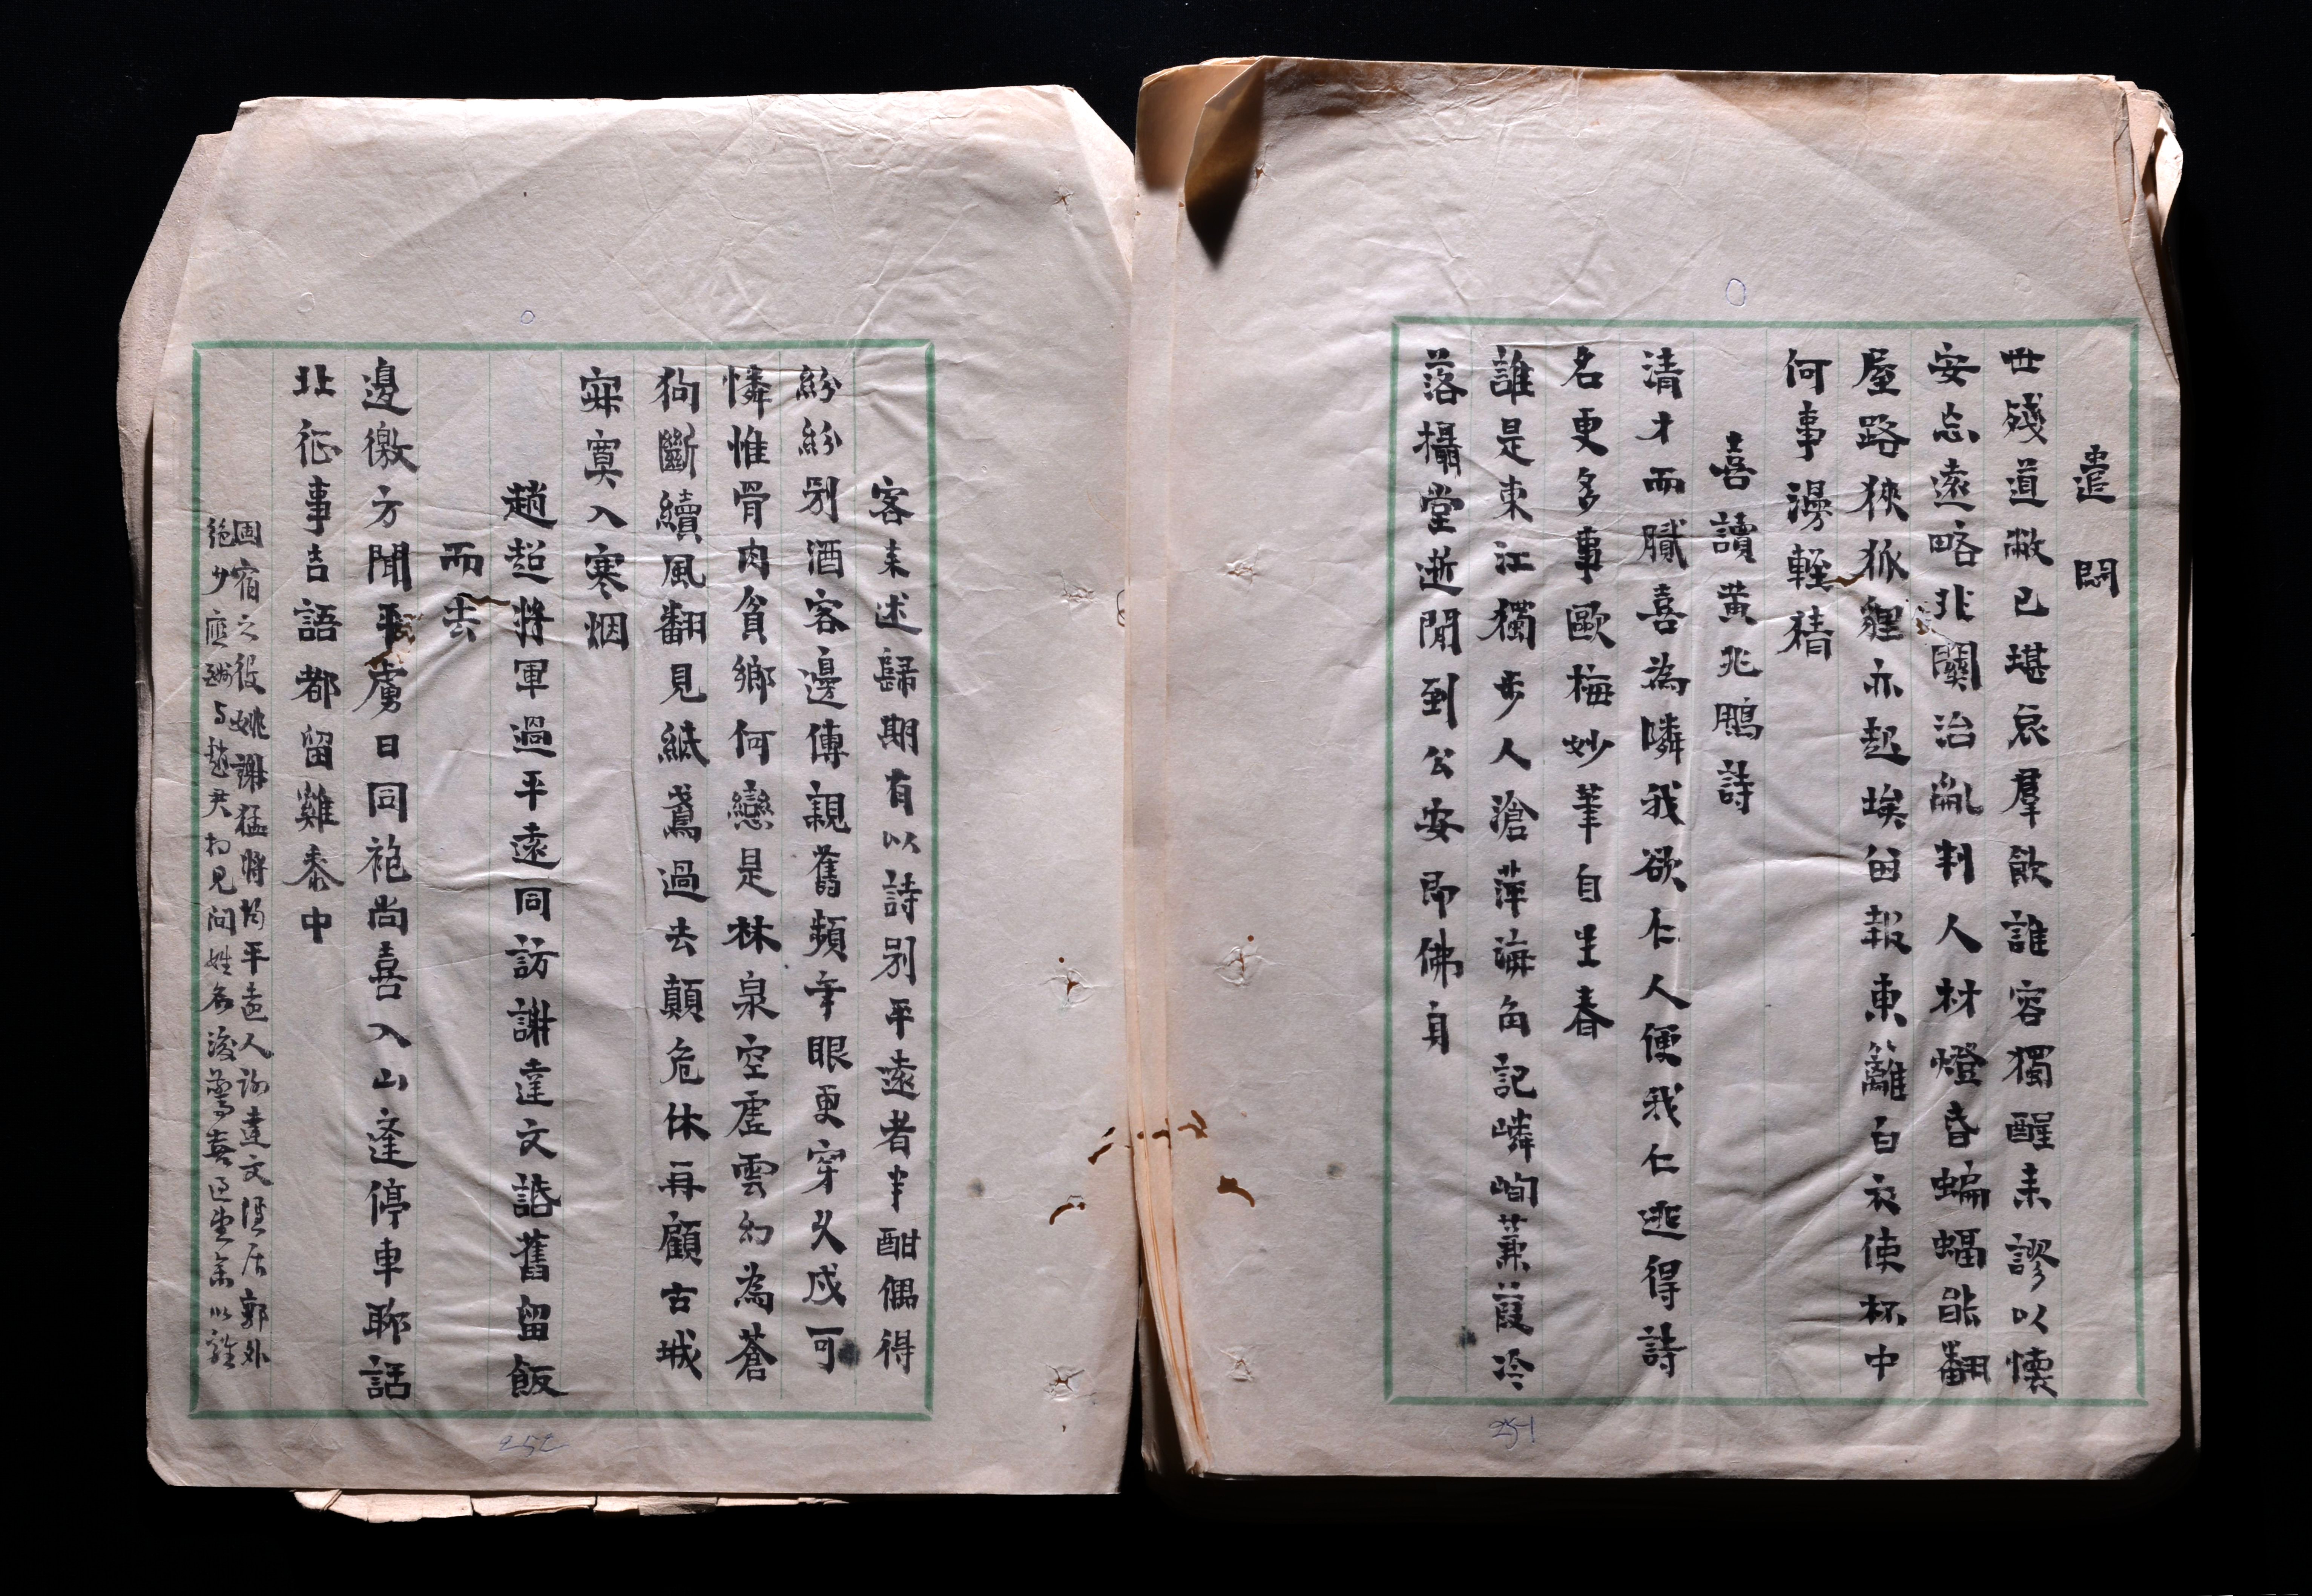 遣悶
世殘道敝已堪哀羣飲誰容獨醒来謬以懷
安忘遠略北關治亂判人材燈昏蝙蝠能翻
屋路狹狐貍亦起埃白報東籬白衣使杯中
何事漫輕猜
喜讀黄兆鵬詩
清才而膩喜為隣我欲仁人便我仁逃得詩
名更多事歐梅妙筆自生春
誰是東江獨步人滄萍海角記嶙峋蒹葭冷
落攝堂逝聞到公安即佛身
251
客来述歸期有以詩别平遠者半酣偶得
紛紛别酒客邊傳親舊頻年眼更穿久戍可
憐惟骨肉貧鄉何戀是林泉空虛雲幻為蒼
狗斷續風翻見紙鳶過去顛危休再顧古城
寂寞入寒烟
趙超將軍過平遠同訪謝達文話舊留飯
而去
邊徼方聞平虜日同袍尚喜入山逢停車聊話
北征事吉語都留雞黍中
固宿之役姚謝猛將均平遠人謝達文隱居郭外
絶少應酬与趙君相見问姓名後驚喜
252